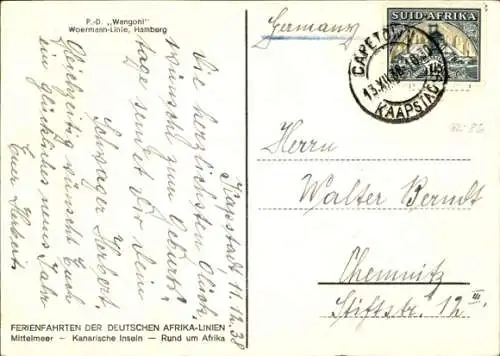 P.-D. „Wangoni"
Woermann-Linie, Hamburg
Germany
SUID-AFRIKA
CAPETOWN
13.XII.38
KAAPSTAD
Kapstadt 11.12.38
Die herzlichsten Glück-
wünsche zum Geburts-
tage sendet Dir Dein
Schwager Herbert.
Gleichzeitig wünscht Euch
ein glückliches neues Jahr
Euer Herbert.
Herrn
Walter Berndt
Chemnitz
Stiftstr. 12 III.
FERIENFAHRTEN DER DEUTSCHEN AFRIKA-LINIEN
Mittelmeer — Kanarische Inseln — Rund um Afrika